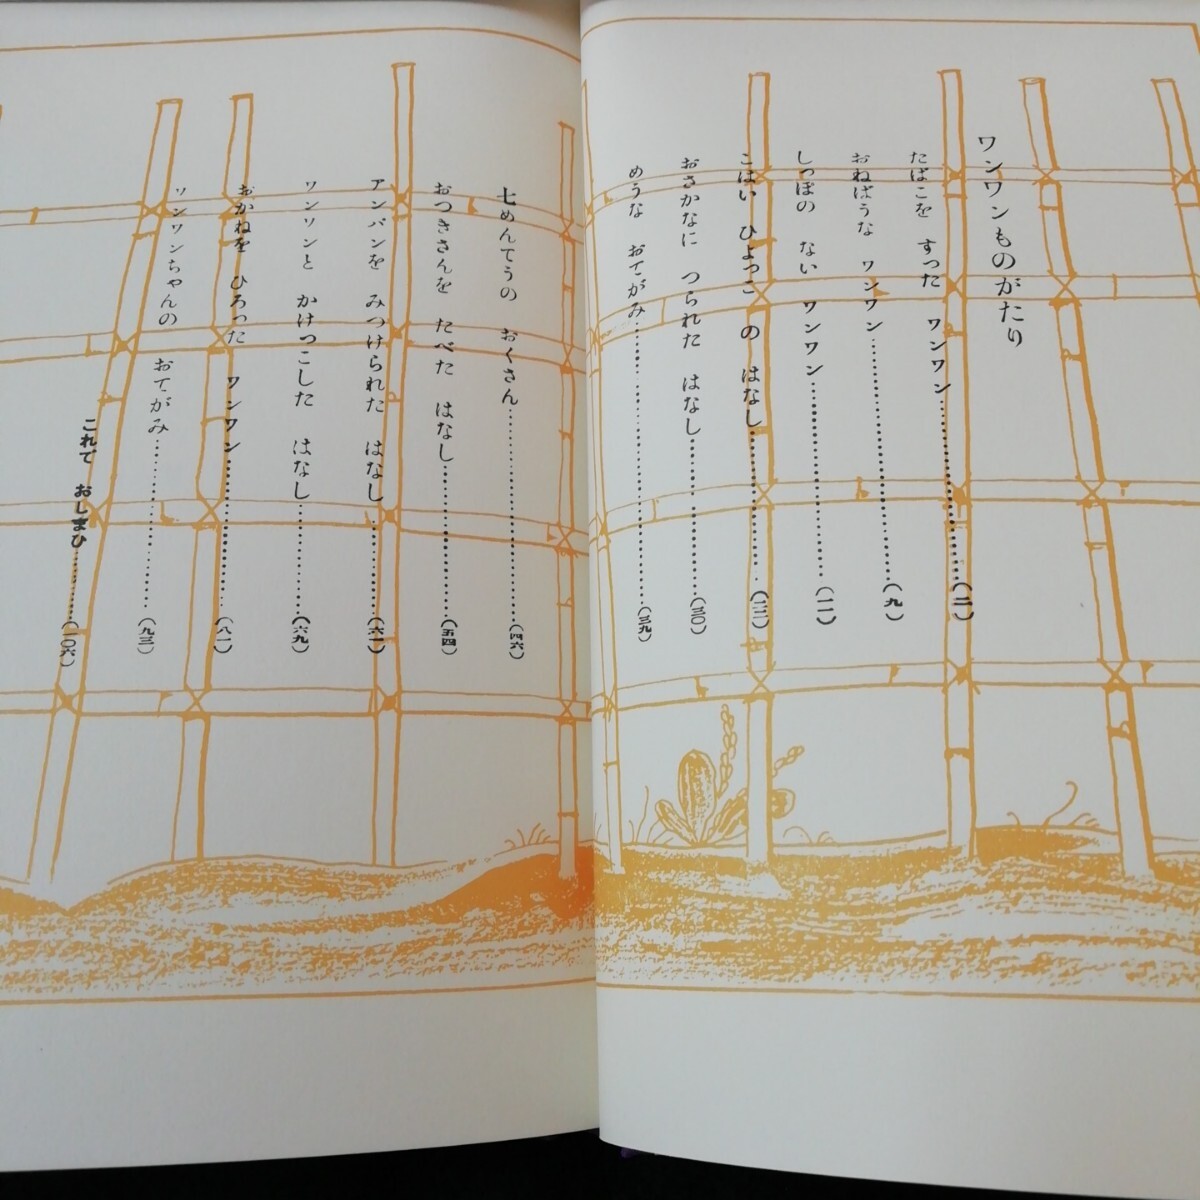 ワンワンものがたり
たばこを すった ワンワン…………(二)
おねばうな ワンワン…………(九)
しっぽの ない ワンワン…………(一一)
こはい ひよっこ の はなし…………(二二)
おさかなに つられた はなし…………(三〇)
めうな おてがみ…………(三九)
七めんてうの おくさん…………(四六)
おつきさんを たべた はなし…………(五四)
アンパンを みつけられた はなし…………(六一)
ワンワンと かけっこした はなし…………(六九)
おかねを ひろった ワンワン…………(八一)
ワンワンちゃんの おてがみ…………(九三)
これで おしまひ…………(一〇六)